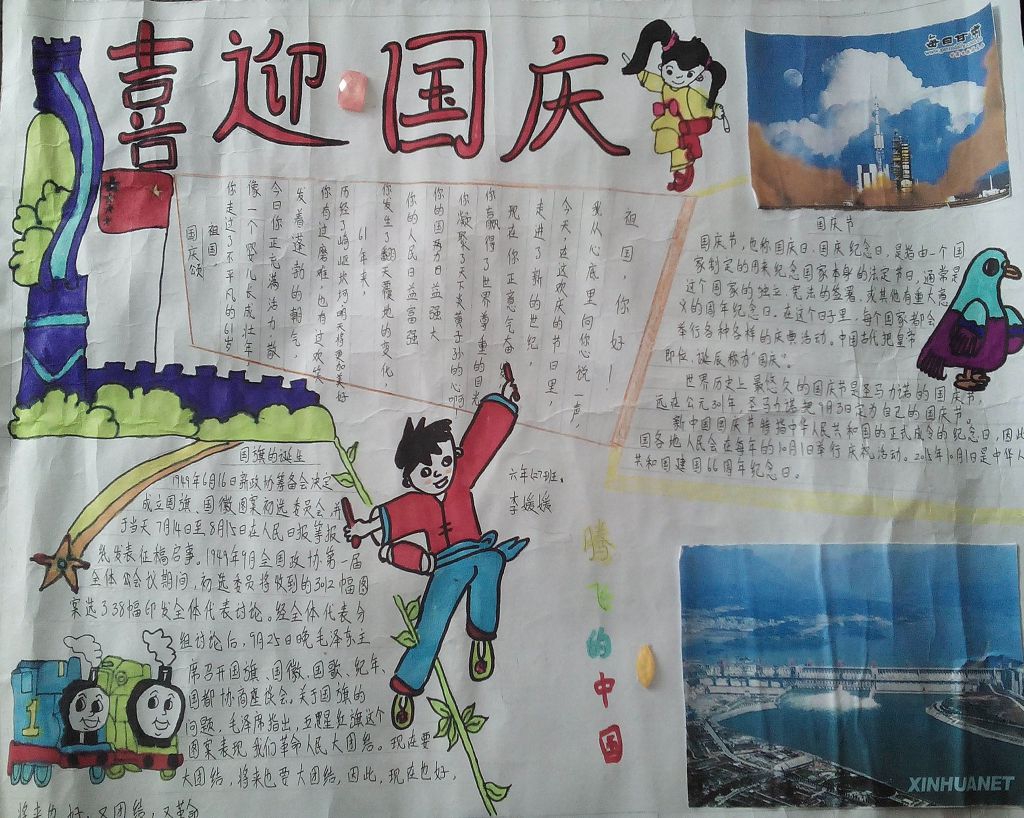 喜迎国庆
每日甘肃
国庆颂
祖国
你走过了不平凡的61岁
像一个婴儿长成壮年
今日你正充满活力散
发着蓬勃的朝气,
你有过磨难,也有过欢笑
历经了崎岖坎坷明天将更加美好
61年来,
你发生了翻天覆地的变化,
你的人民日益富强
你的国势力日益强大
你凝聚了天下炎黄子孙的心啊!
你赢得了世界尊重的目光
现在你正意气奋
走进了新的世纪,
今天在这欢庆的节日里,
我从心底里向你心说一声,
祖国,你好!
六年(7)班。
李媛媛
国庆节
国庆节,也称国庆日、国庆纪念日,是指由一个国
家制定的用来纪念国家本身的法定节日,通常是
这个国家的独立、宪法的签署、或其他有重大意
义的周年纪念日。在这个日子里,每个国家都会
举行各种各样的庆典活动。中国古代把皇帝
即位、诞辰称为“国庆”。
世界历史上最悠久的国庆节是圣马力诺的国庆节,
远在公元301年,圣马力诺把9月3日定为自己的国庆节。
新中国国庆节特指中华人民共和国的正式成今的纪念日,因此
国各地人民会在每年的10月1日举行庆祝活动。2015年10月1日是中华人
共和国建国66周年纪念日。
国旗的诞生
1949年6月16日新政协筹备会决定
成立国旗、国徽图案初选委员会,并
于当天7月14日至8月15日在人民日报等报
纸发表征稿启事。1949年9月全国政协第一届
全体会议期间,初选委员将收到的3012幅图
案选了38幅印发全体代表讨论。经全体代表分
组讨论后,9月25日晚毛泽东主
席召开国旗、国徽、国歌、纪年、
国都协商座谈会。关于国旗的
问题,毛泽席指出,五星红旗这个
图案表现我们革命人民大团结。现在要
大团结,将来也要大团结,因此,现在也好,
将来也好,又团结,又革命
1
腾飞的中国
XINHUANET